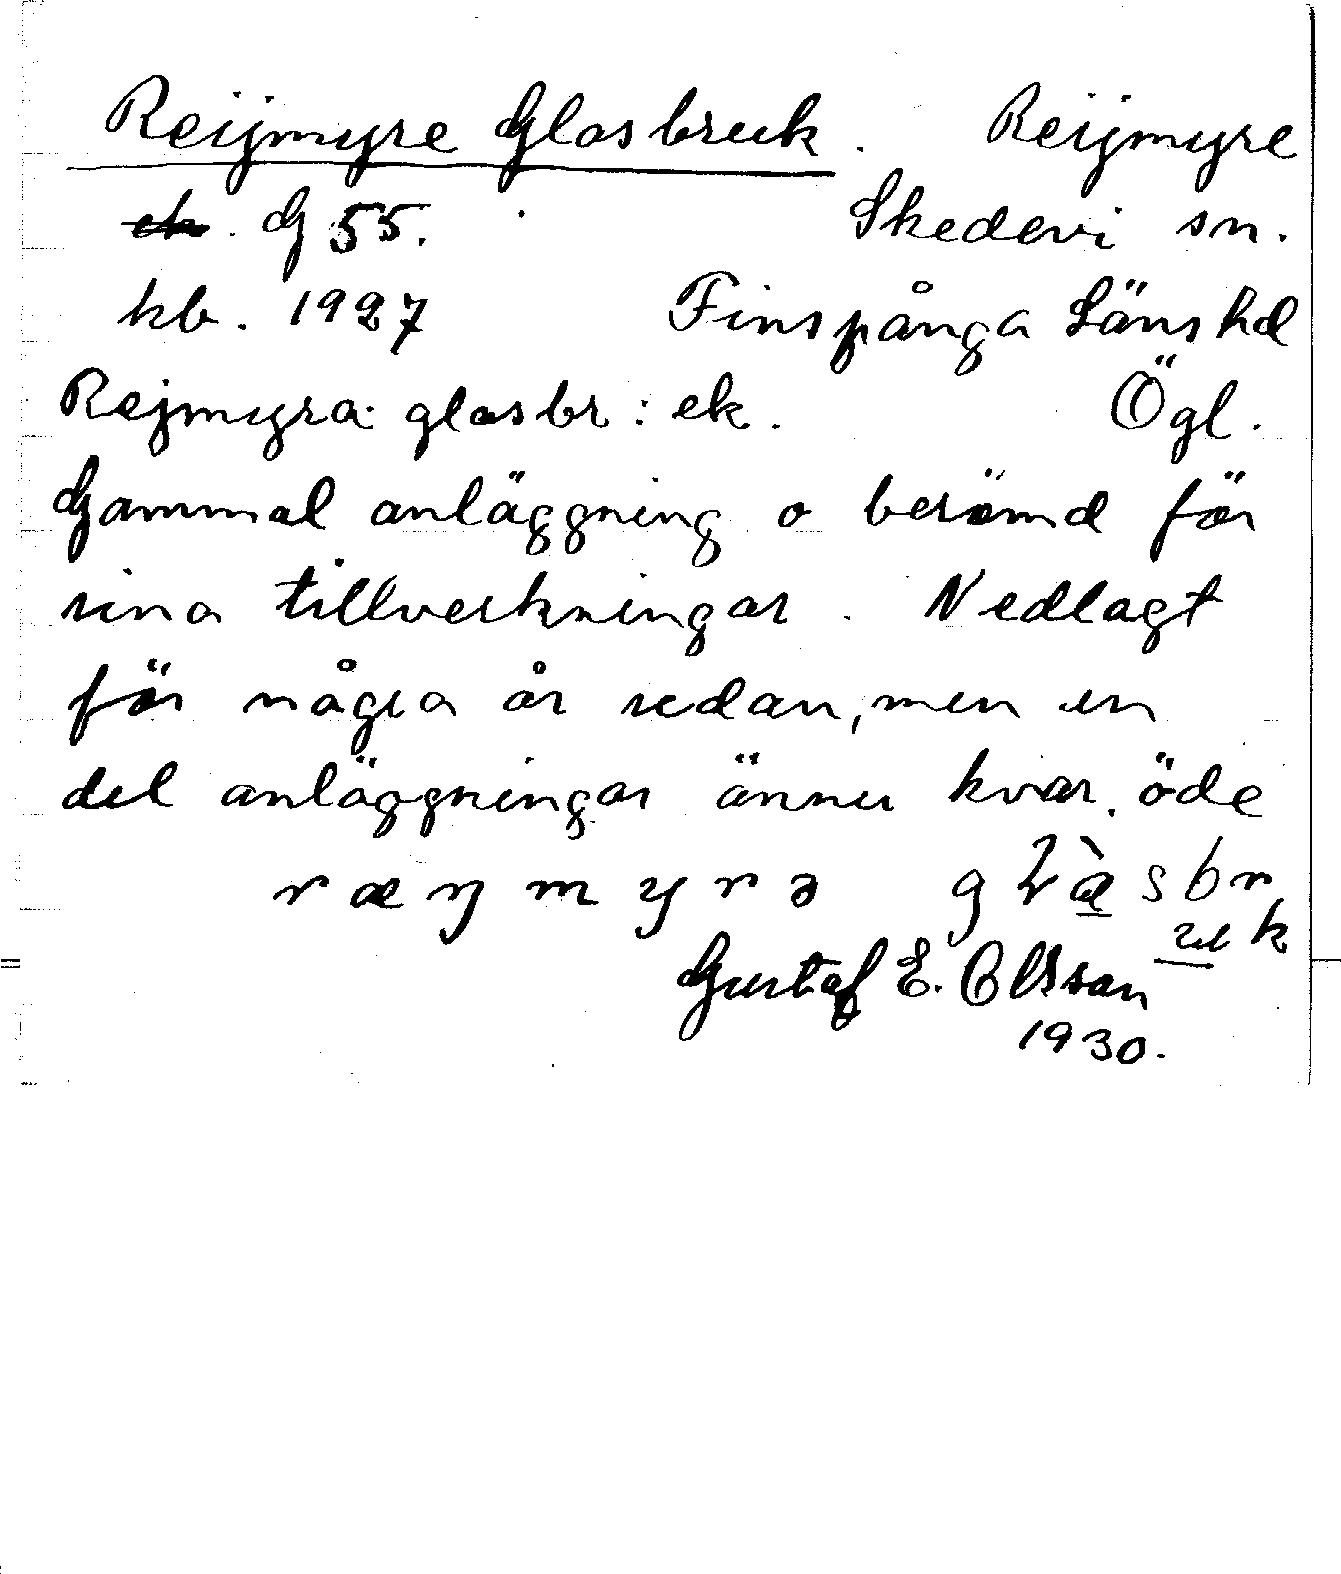 Reijmyre Glasbruk. Reijmyre
ek. G 55. Skedevi sn.
kb. 1927 Finspånga Läns hd
Rejmyra: glasbr: ek. Ögl.
Gammal anläggning o berömd för
sina tillverkningar. Nedlagt
för några år sedan, men en
del anläggningar ännu kvar. öde
Gustaf E. Olsson
1930.